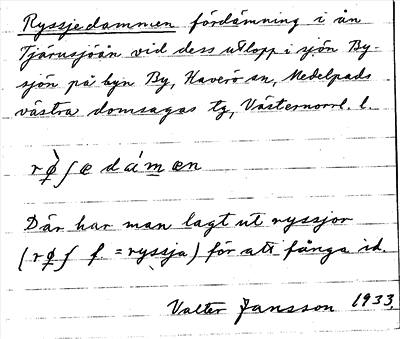 Ryssjedammen fördämning i ån
Tjärusjöån vid dess utlopp i sjön By-
sjön på byn By, Haverö sn, Medelpads
västra domsagas tg, Västernorrl. l.
rø̀ʃæ dám̲æn
Där har man lagt ut ryssjor
(rø̀ʃ f. = ryssja) för att fånga id.
Valter Jansson 1933.